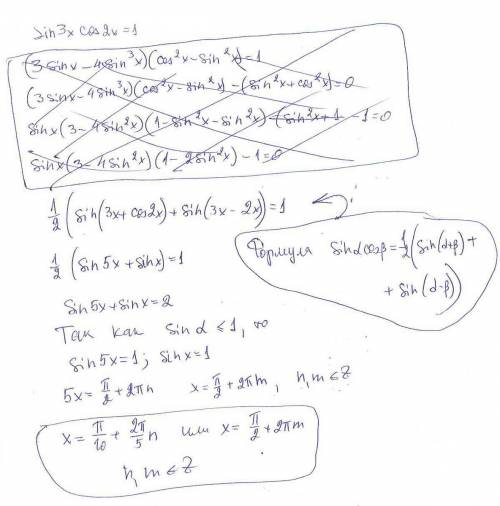 sin3x cos2x=1
(3sinx-4sin³x)(cos²x-sin²x)=1
(3sinx-4sin³x)(cos²x-sin²x)-(sin²x+cos²x)=0
sinx(3-4sin²x)(1-sin²x-sin²x)-(sin²x+1 -1=0
sinx(3-4sin²x)(1-2sin²x)-1=0
1/2(sin(3x+cos2x)+sin(3x-2x))=1
Формула sinαcosβ=1/2(sin(α+β)+
+sin(α-β))
1/2(sin5x+sinx)=1
sin5x+sinx=2
Так как sinα≤1, то
sin5x=1; sinx=1
5x=π/2+2πn x=π/2+2πm, n,m∈Z
x=π/10+2π/5 n или x=π/2+2πm
n,m∈Z